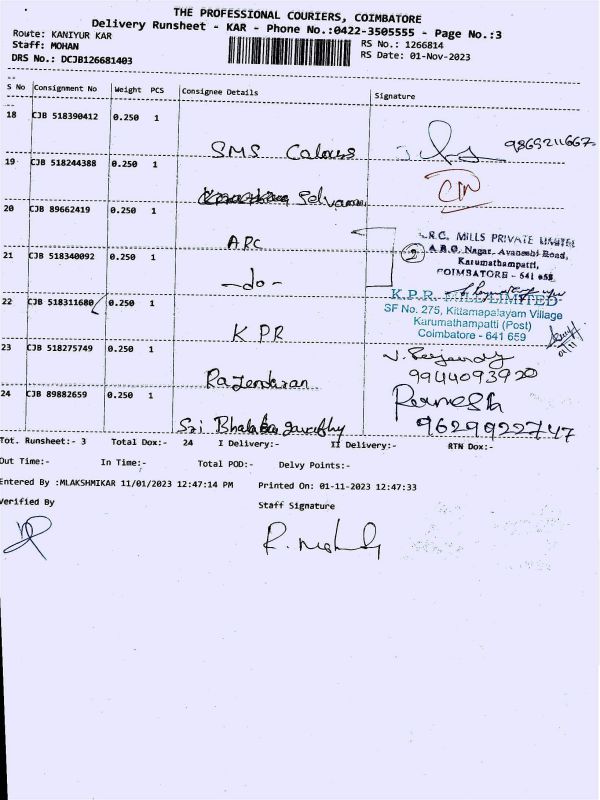 THE PROFESSIONAL COURIERS, COIMBATORE
Delivery Runsheet - KAR - Phone No.:0422-3505555 - Page No.:3
Route: KANIYUR KAR
RS No.: 1266814
Staff: MOHAN
RS Date: 01-Nov-2023
DRS No.: DCJB126681403
S No Consignment No Weight PCS Consignee Details Signature
18 CJB 518390412 0.250 1
SMS 9865211667
19 CJB 518244388 0.250 1
Selvam
20 CJB 89662419 0.250 1
ARC
MILLS PRIVATE LIMITED
Nagar, Avanashi Road,
Karumathampatti,
COIMBATORE - 641 659
21 CJB 518340092 0.250 1
-do-
22 CJB 518311680 0.250 1
KPR
K.P.R. MILL LIMITED
SF No. 275, Kittampalayam Village
Karumathampatti (Post)
Coimbatore - 641 659
23 CJB 518275749 0.250 1
Rajendaran
9944093920
24 CJB 89882659 0.250 1
Sri
Ramesh
9629922747
Tot. Runsheet:- 3 Total Dox:- 24 I Delivery:- II Delivery:- RTN Dox:-
Out Time:- In Time:- Total POD:- Delvy Points:-
Entered By :MLAKSHMIKAR 11/01/2023 12:47:14 PM Printed On: 01-11-2023 12:47:33
Verified By Staff Signature